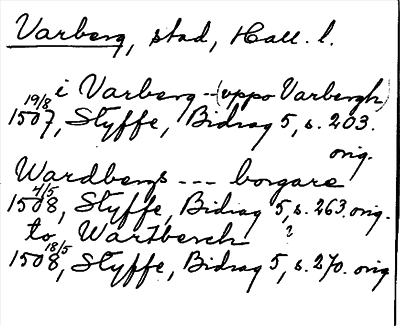 Varberg, stad, Hall. l.
i Varberg -- (uppo Varbergh)
19/8
1507, Styffe, Bidrag 5, s. 203.
orig.
Wardbergs --- borgare
4/5
1508, Styffe, Bidrag 5, s. 263. orig.
to Wartberch ?
18/5
1508, Styffe, Bidrag 5, s. 270. orig